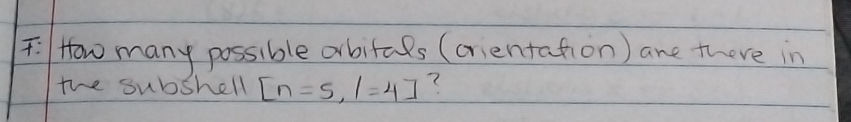 F: How many possible orbitals (orientation) are there in
the subshell [n=5, l=4]?